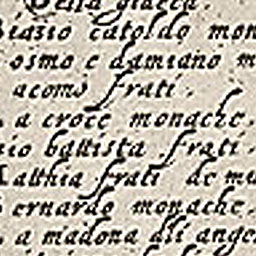 Della giudeca.
biazio catoldo mon
osmo e damiano m
acomo frati.
a croce monache.
nio battista frati.
Matthia frati de mu
ernardo monache.
a madona dli ange